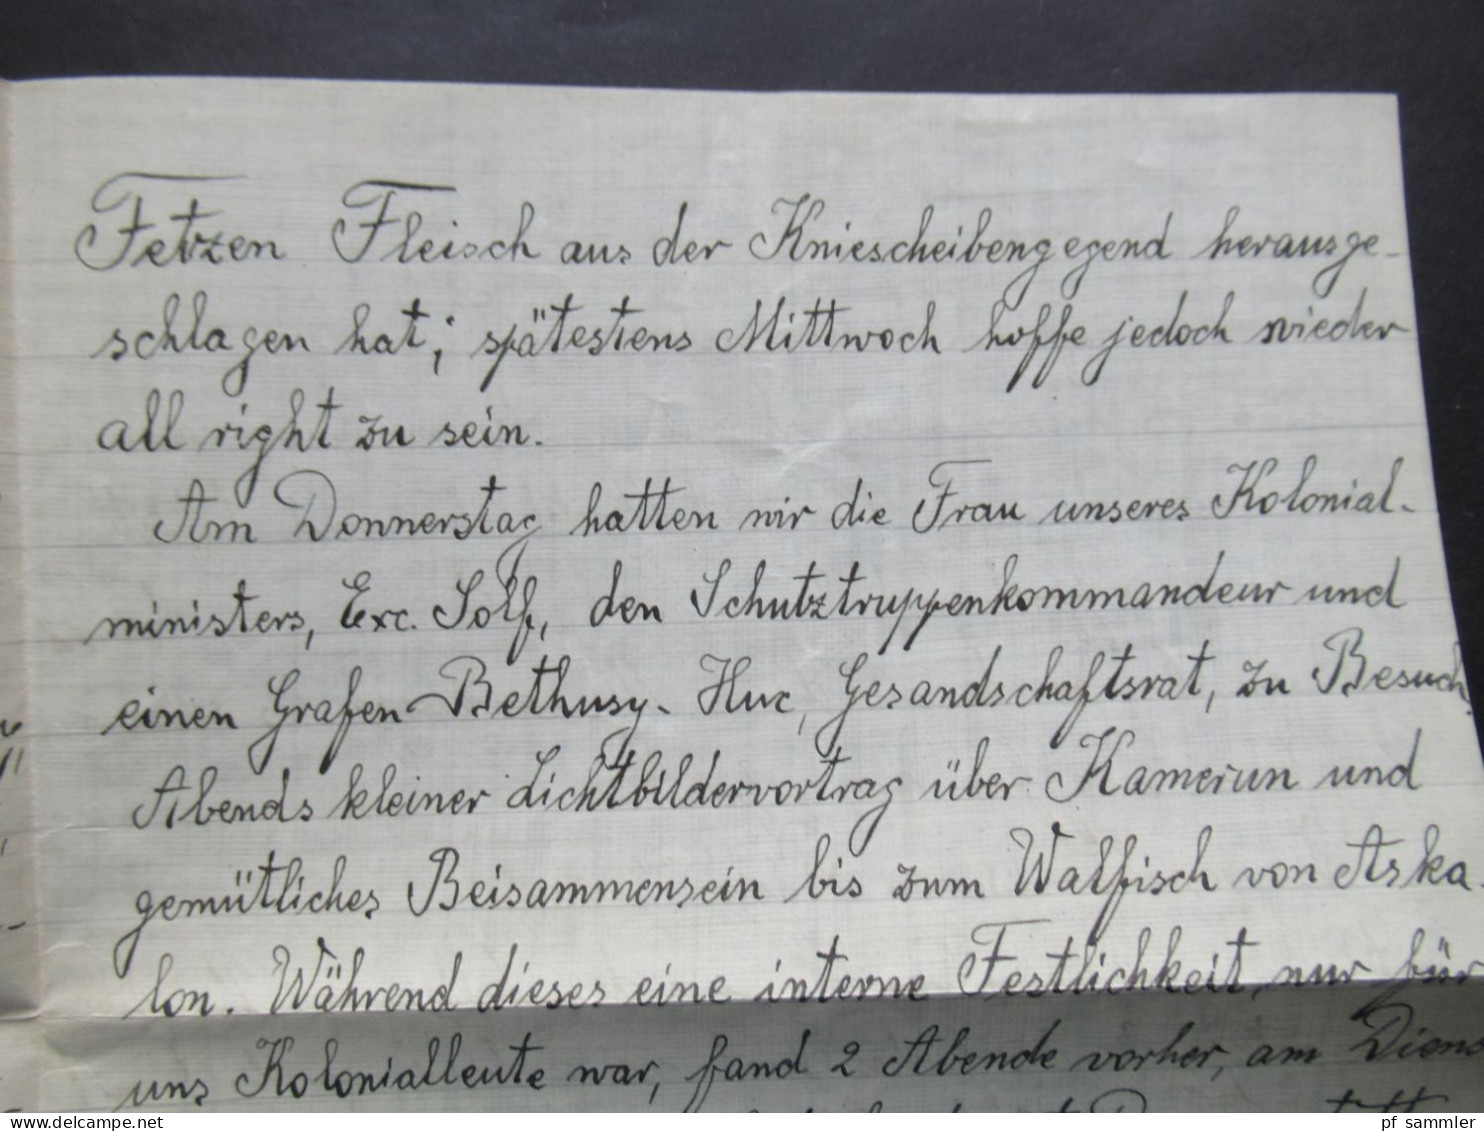 Fetzen Fleisch aus der Kniescheibengegend herausge-
schlagen hat; spätestens Mittwoch hoffe jedoch wieder
all right zu sein.
Am Donnerstag hatten wir die Frau unseres Kolonial-
ministers, Exc. Solf, den Schutztruppenkommandeur und
einen Grafen Bethusy-Huc, Gesandschaftsrat, zu Besuch.
Abends kleiner Lichtbildervortrag über Kamerun und
gemütliches Beisammensein bis zum Walfisch von Aska-
lon. Während dieses eine interne Festlichkeit, nur für
uns Kolonialleute war, fand 2 Abende vorher, am Diens
www.delcampe.net
pf_sammler